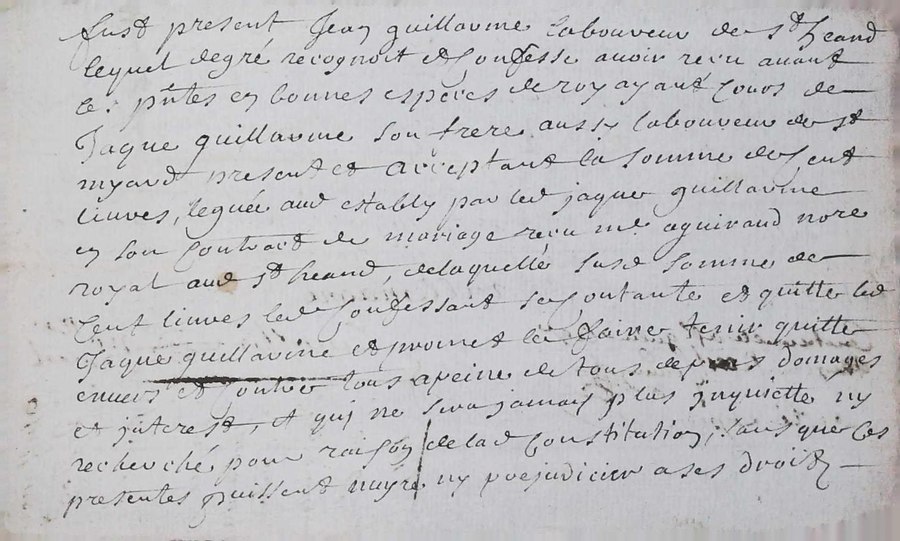 fust present Jean guillaume laboureur de st heand
lequel de gré recognoit et confesse avoir receu avant
le. pntes en bonnes especes de roy ayant cours de
Jaque guillaume son frere aussy laboureur de st
myard present et acceptant la somme de cent
liuures, leguée aud estably par led jaque guillaume
en son contract de mariage receu me aguiraud nore
royal aud st heand, delaquelle susd somme de
Cent liuures led confessant se contante et quitte led
Jaque guillaume et promet le faire tenir quitte
envers et contre tous apeine de tous depens domages
et jnterest, et quj ne sera jamais plus jnquietté ny
recherché pour raison de lad constitution, sans que ces
presentes puissent nuyre ny prejudicier a ses droitz